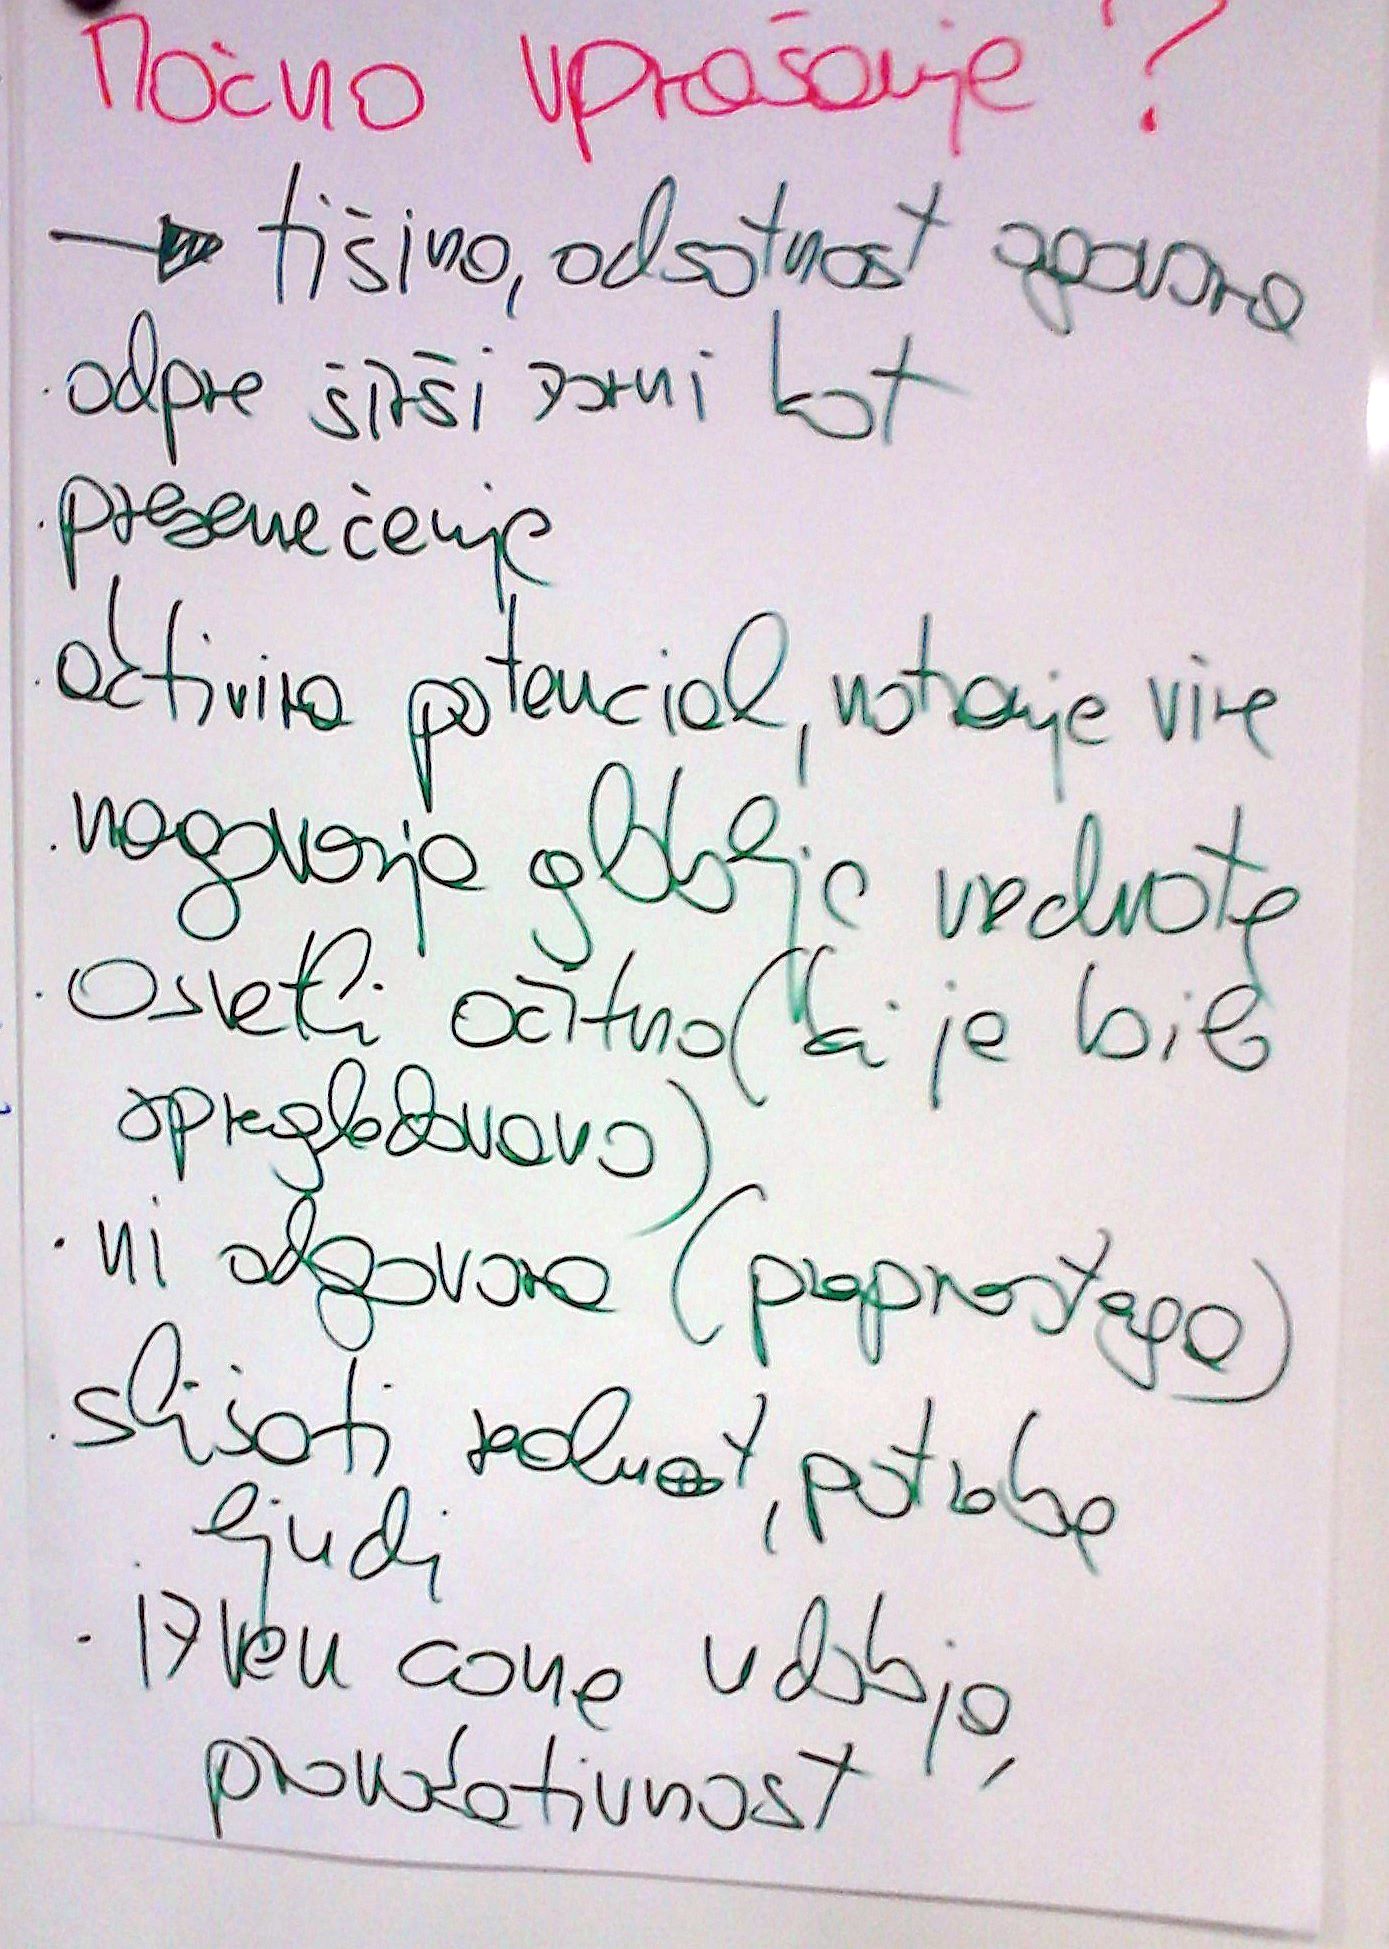 Močno vprašanje?
→ tišina, odsotnost govora
· odpre širši zorni kot
· presenečenje
· aktivira potencial, notranje vire
· nagovarja globlje vrednote
· Osvetli očitno (ki je bilo
spregledovano)
· ni odgovora (preprostega)
· slišati realnost, potrebe
ljudi
· izven cone udobja,
provokativnost